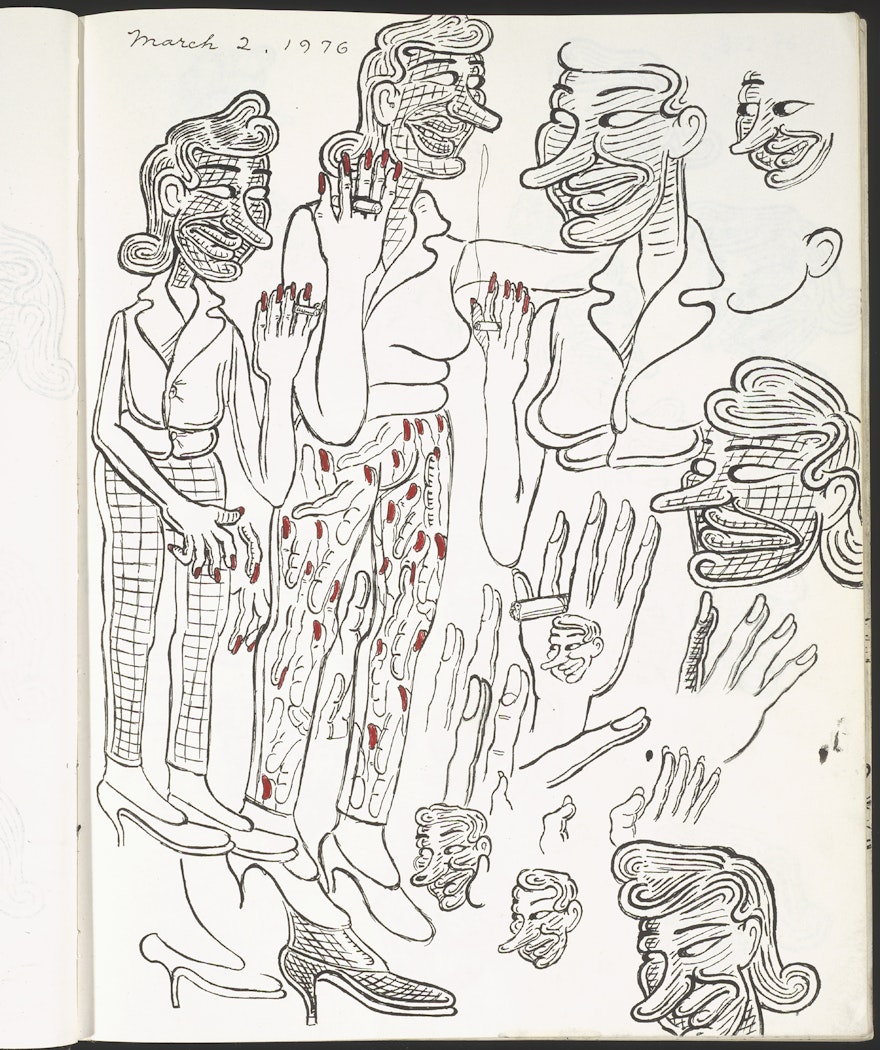 March 2, 1976